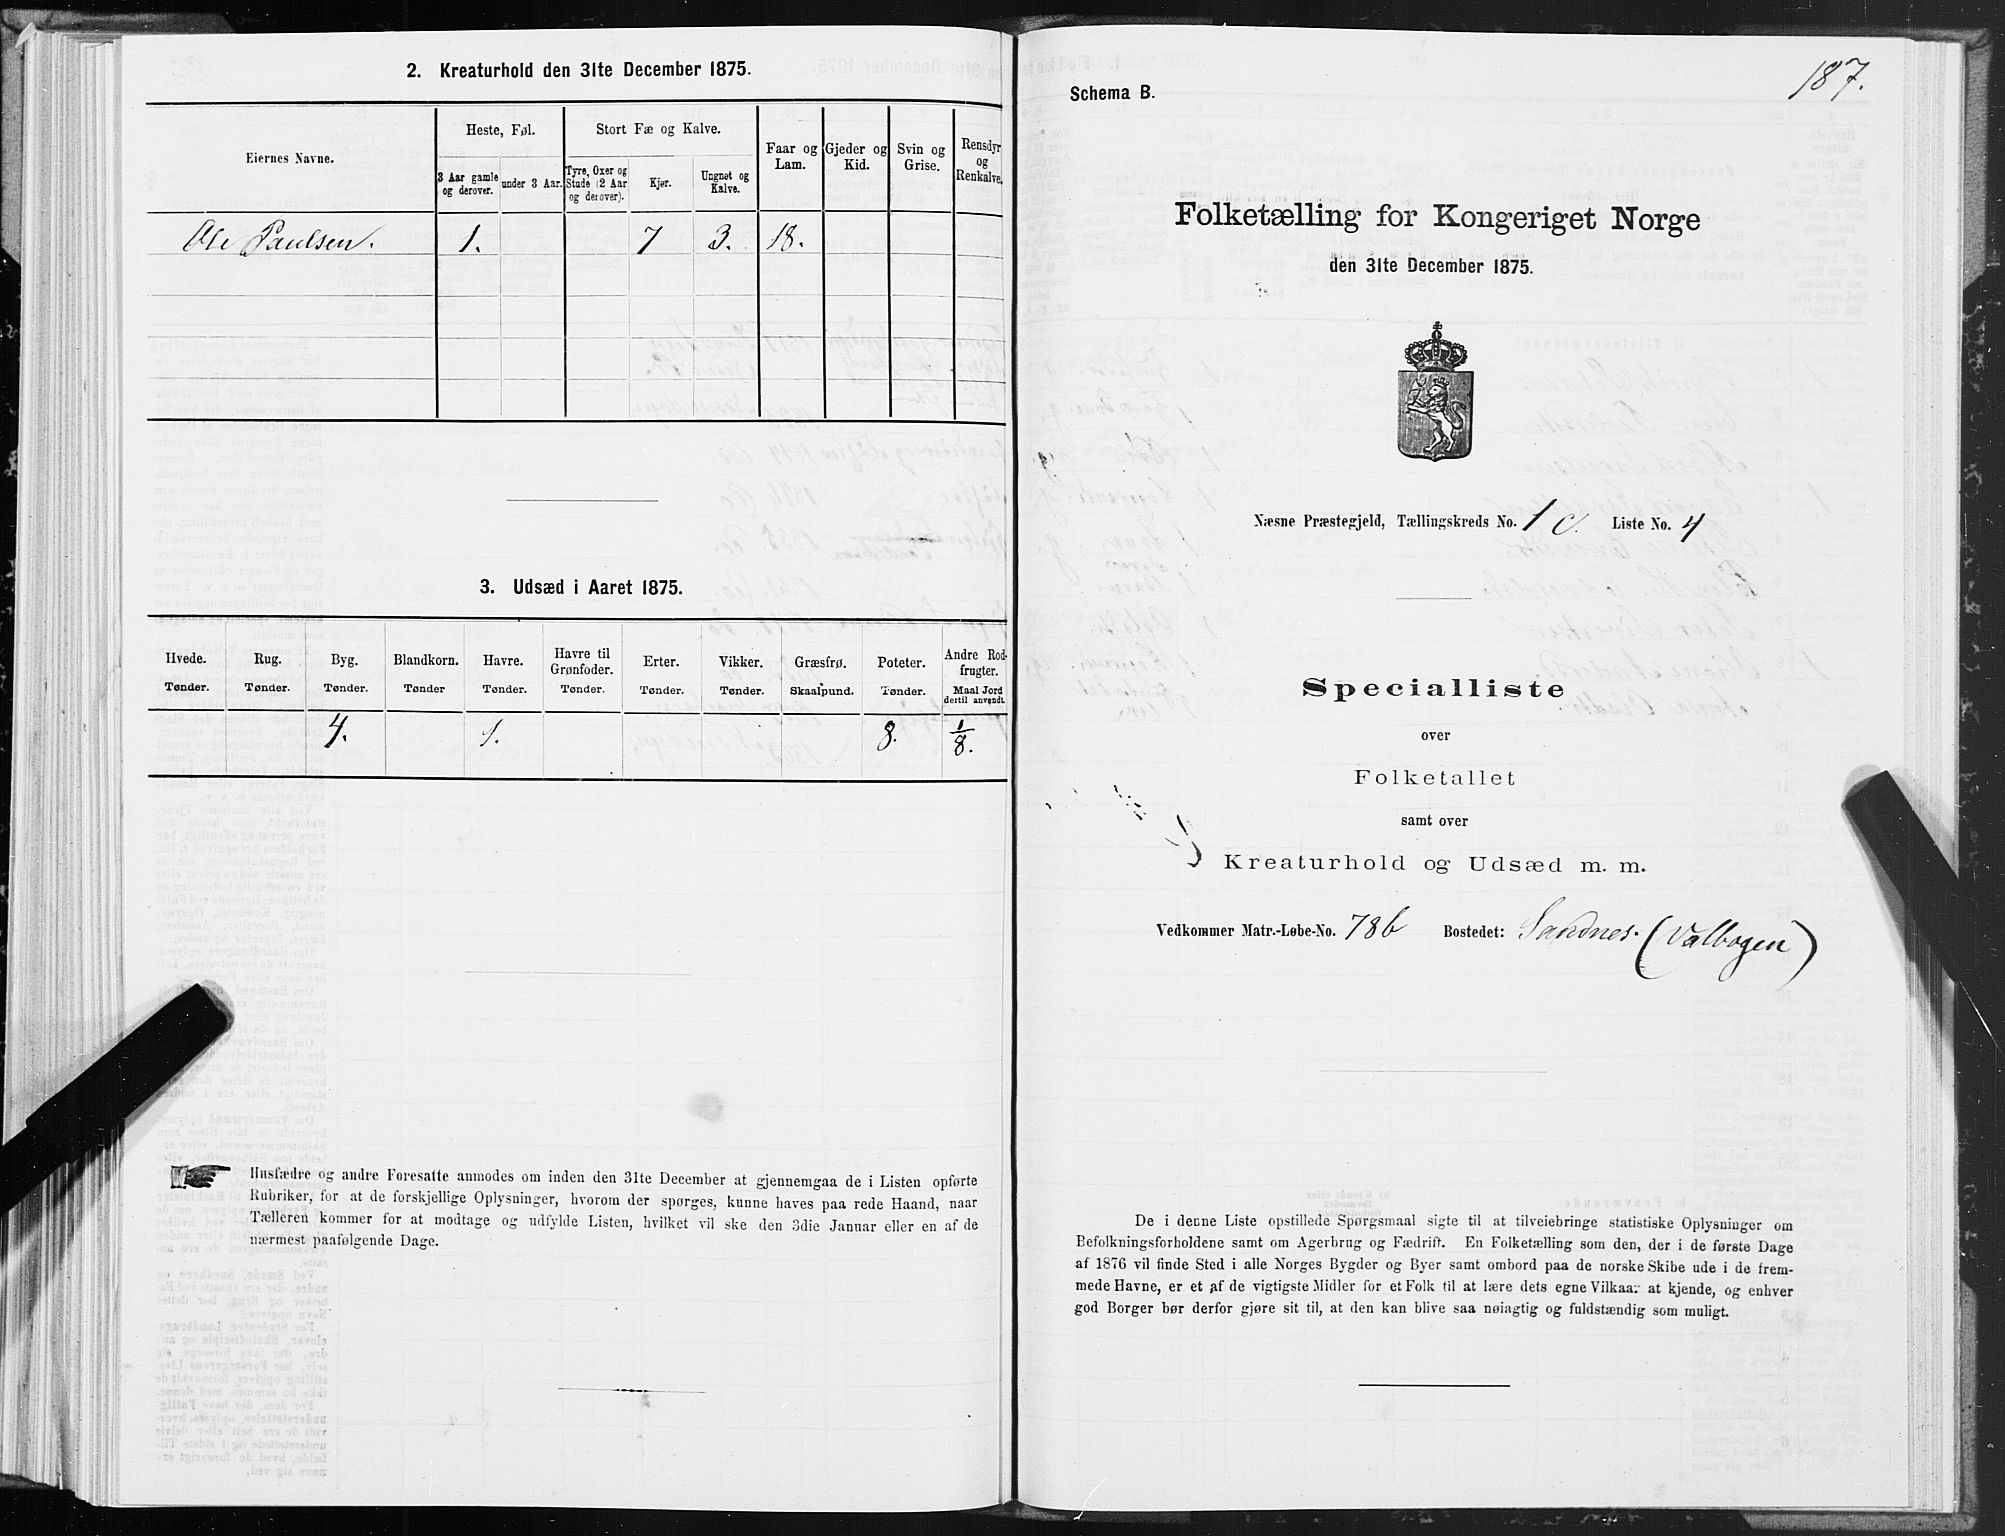 2. Kreaturhold den 31te December 1875.
Eiernes Navne.
Heste, Føl.
Stort Fæ og Kalve.
3 Aar gamle og derover.
under 3 Aar.
Tyre, Oxer og Stude (2 Aar og derover).
Kjør.
Ungnet og Kalve.
Faar og Lam.
Gjeder og Kid.
Svin og Grise.
Rensdyr og Renkalve.
Ole Paulsen. 1. 7 3. 18.
3. Udsæd i Aaret 1875.
Hvede. Rug. Byg. Blandkorn. Havre. Havre til Grønfoder. Erter. Vikker. Græsfrø. Poteter. Andre Rodfrugter.
Tønder. Tønder. Tønder. Tønder Tønder. Tønder. Tønder. Tønder. Skaalpund. Tønder. Maal Jord dertil anvendt.
4. 1. 8. 1/8.
Husfædre og andre Foresatte anmodes om inden den 31te December at gjennemgaa de i Listen opførte
Rubriker, for at de forskjellige Oplysninger, hvorom der spørges, kunne haves paa rede Haand, naar
Tælleren kommer for at modtage og udfylde Listen, hvilket vil ske den 3die Januar eller en af de
nærmest paafølgende Dage.
187.
Schema B.
Folketælling for Kongeriget Norge
den 31te December 1875.
Næsne Præstegjeld, Tællingskreds No. 1 c. Liste No. 4
Specialliste
over
Folketallet
samt over
Kreaturhold og Udsæd m. m.
Vedkommer Matr.-Løbe-No. 78b Bostedet: Sandnes. (Valbogen)
De i denne Liste opstillede Spørgsmaal sigte til at tilveiebringe statistiske Oplysninger om
Befolkningsforholdene samt om Agerbrug og Fædrift. En Folketælling som den, der i de første Dage
af 1876 vil finde Sted i alle Norges Bygder og Byer samt ombord paa de norske Skibe ude i de frem-
mede Havne, er et af de vigtigste Midler for et Folk til at lære dets egne Vilkaar at kjende, og enhver
god Borger bør derfor gjøre sit til, at den kan blive saa nøiagtig og fuldstændig som muligt.